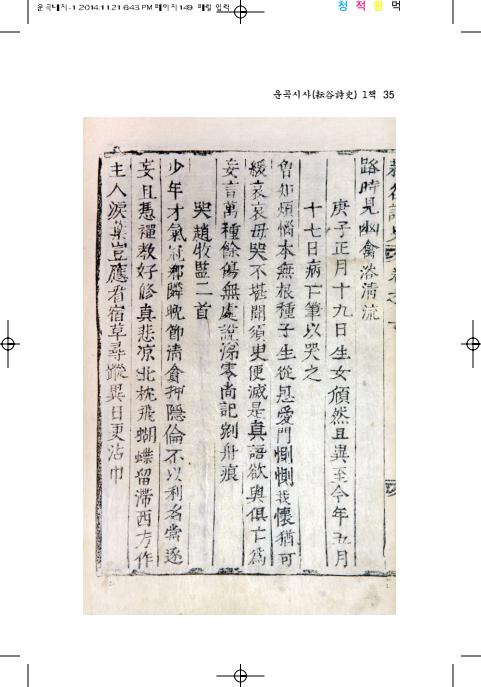 운곡내지-1 2014.11.21 6:43 PM 페이지149 매일 입력
청 적 황 먹
운곡시사(耘谷詩史) 1책 35
路時見幽禽浴清流
庚子正月十九日生女頎然且異至今年五月
十七日病亡筆以哭之
曾知煩惱本無根種子生從恩愛門惻惻我懷猶可
緩哀哀母哭不堪聞須臾便滅是真語欲與俱亡爲
妄言萬種餘傷無處說涕零尚記刻舟痕
哭趙牧監二首
少年才氣冠鄕隣晩節清貪押隱倫不以利名嘗逐
妄且憑禪教好修真悲凉北枕飛蝴蝶留滯西方作
主人淚葉豈應看宿草尋蹤異日更沾巾